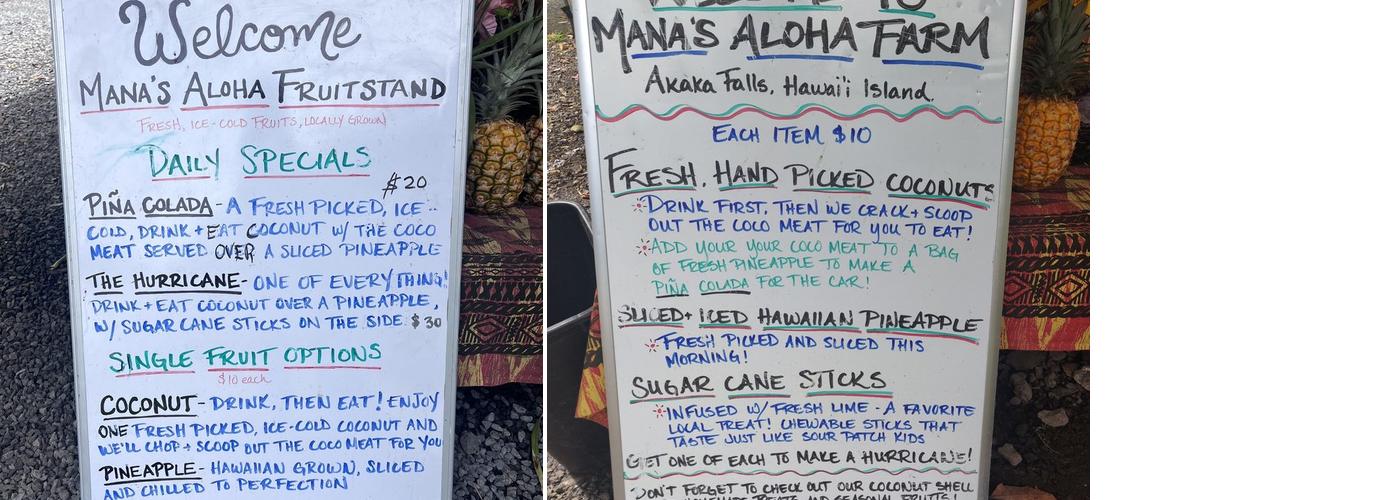 Welcome
MANA'S ALOHA FRUITSTAND
FRESH, ICE-COLD FRUITS, LOCALLY GROWN
DAILY SPECIALS
$20
PIÑA COLADA - A FRESH PICKED, ICE
COLD, DRINK + EAT COCONUT W/ THE COCO
MEAT SERVED OVER A SLICED PINEAPPLE
THE HURRICANE - ONE OF EVERYTHING!
DRINK + EAT COCONUT OVER A PINEAPPLE,
W/ SUGAR CANE STICKS ON THE SIDE $30
SINGLE FRUIT OPTIONS
$10 each
COCONUT - DRINK, THEN EAT! ENJOY
ONE FRESH PICKED, ICE-COLD COCONUT AND
WE'LL CHOP + SCOOP OUT THE COCO MEAT FOR YOU
PINEAPPLE - HAWAIIAN GROWN, SLICED
AND CHILLED TO PERFECTION
WELCOME TO
MANA'S ALOHA FARM
Akaka Falls, Hawai'i Island.
EACH ITEM $10
FRESH, HAND PICKED COCONUTS
DRINK FIRST, THEN WE CRACK + SCOOP
OUT THE COCO MEAT FOR YOU TO EAT!
ADD YOUR YOUR COCO MEAT TO A BAG
OF FRESH PINEAPPLE TO MAKE A
PIÑA COLADA FOR THE CAR!
SLICED + ICED HAWAIIAN PINEAPPLE
FRESH PICKED AND SLICED THIS
MORNING!
SUGAR CANE STICKS
INFUSED W/ FRESH LIME - A FAVORITE
LOCAL TREAT! CHEWABLE STICKS THAT
TASTE JUST LIKE SOUR PATCH KIDS
GET ONE OF EACH TO MAKE A HURRICANE!
DON'T FORGET TO CHECK OUT OUR COCONUT SHELL
TREATS AND SEASONAL FRUITS!